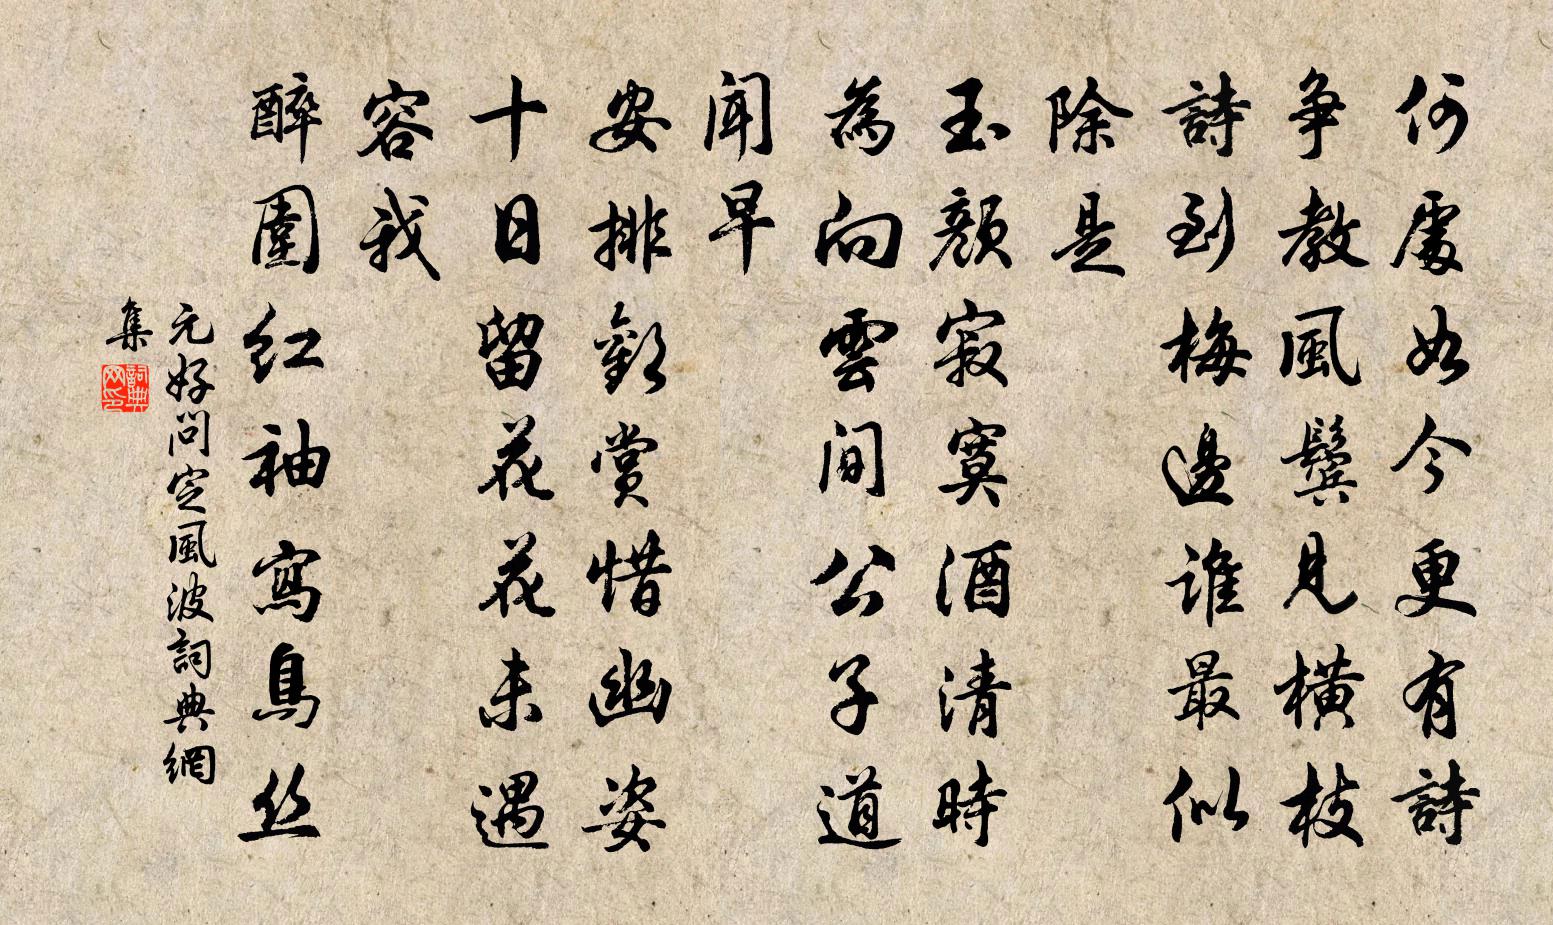 何處如今更有詩
争教風鬢見橫枝
詩到梅邊誰最似
除是
玉顏寂寞酒清時
為向雲間公子道
聞早
安排歡賞惜幽姿
十日留花花未遇
容我
醉圍紅袖寫烏丝
元好問定風波詞典網
集
詞典网印